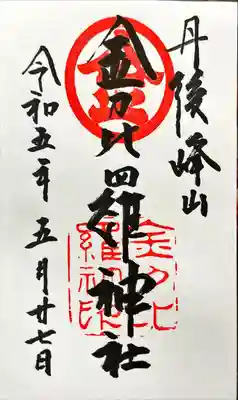 丹後峰山
金刀比羅神社
令和五年 五月廿七日
金
金刀比
羅神社印